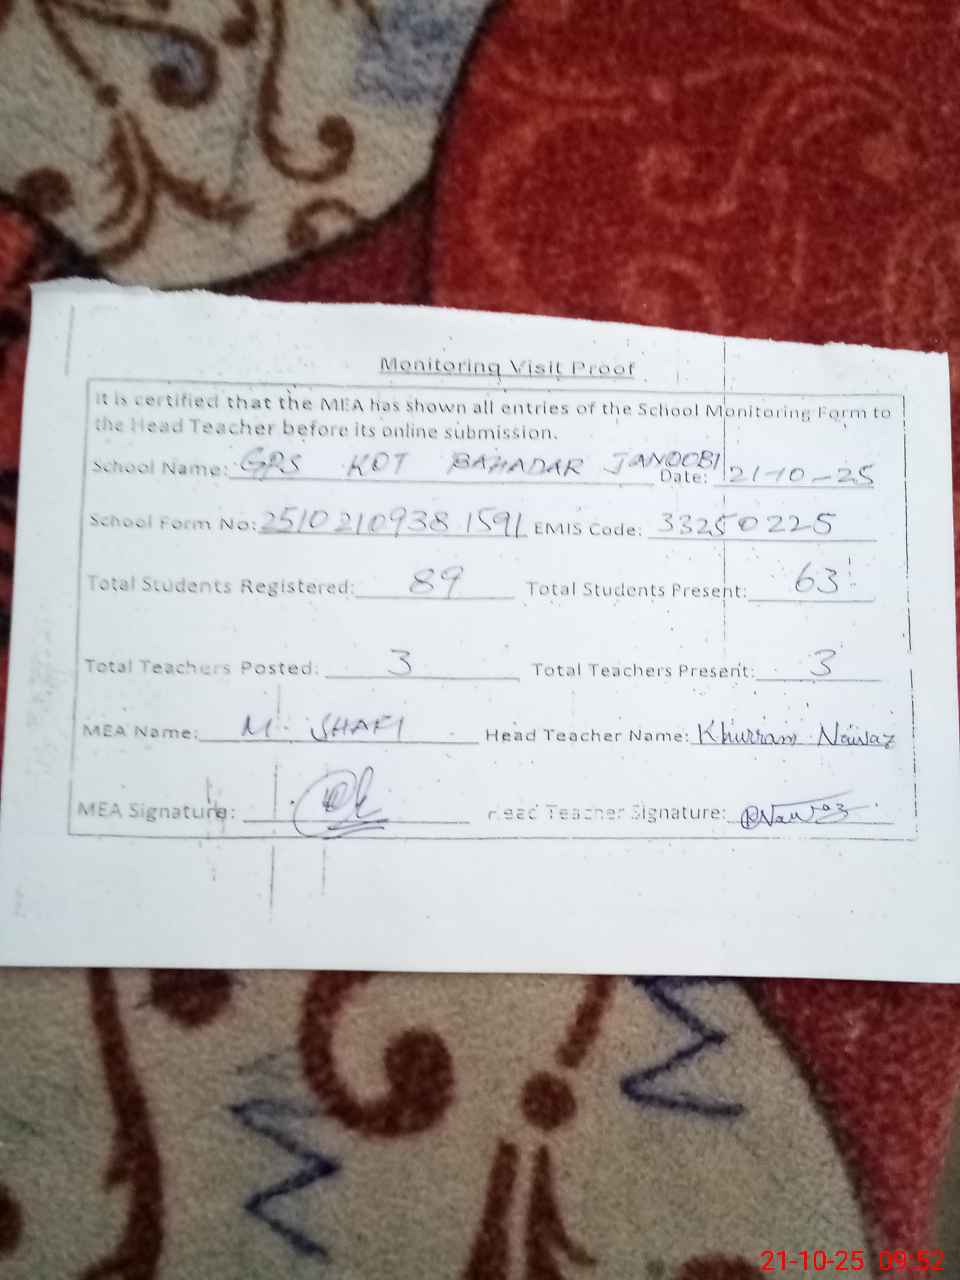 Monitoring Visit Proof
It is certified that the MEA has shown all entries of the School Monitoring Form to
the Head Teacher before its online submission.
School Name: GPS KOT BAHADAR JANOOBI Date: 21-10-25
School Form No: 2510210938 1591 EMIS Code: 33250225
Total Students Registered: 89 Total Students Present: 63
Total Teachers Posted: 3 Total Teachers Present: 3
MEA Name: M. SHAFI Head Teacher Name: Khurram Nawaz
MEA Signature: Head Teacher Signature: Nawaz
21-10-25 09:52